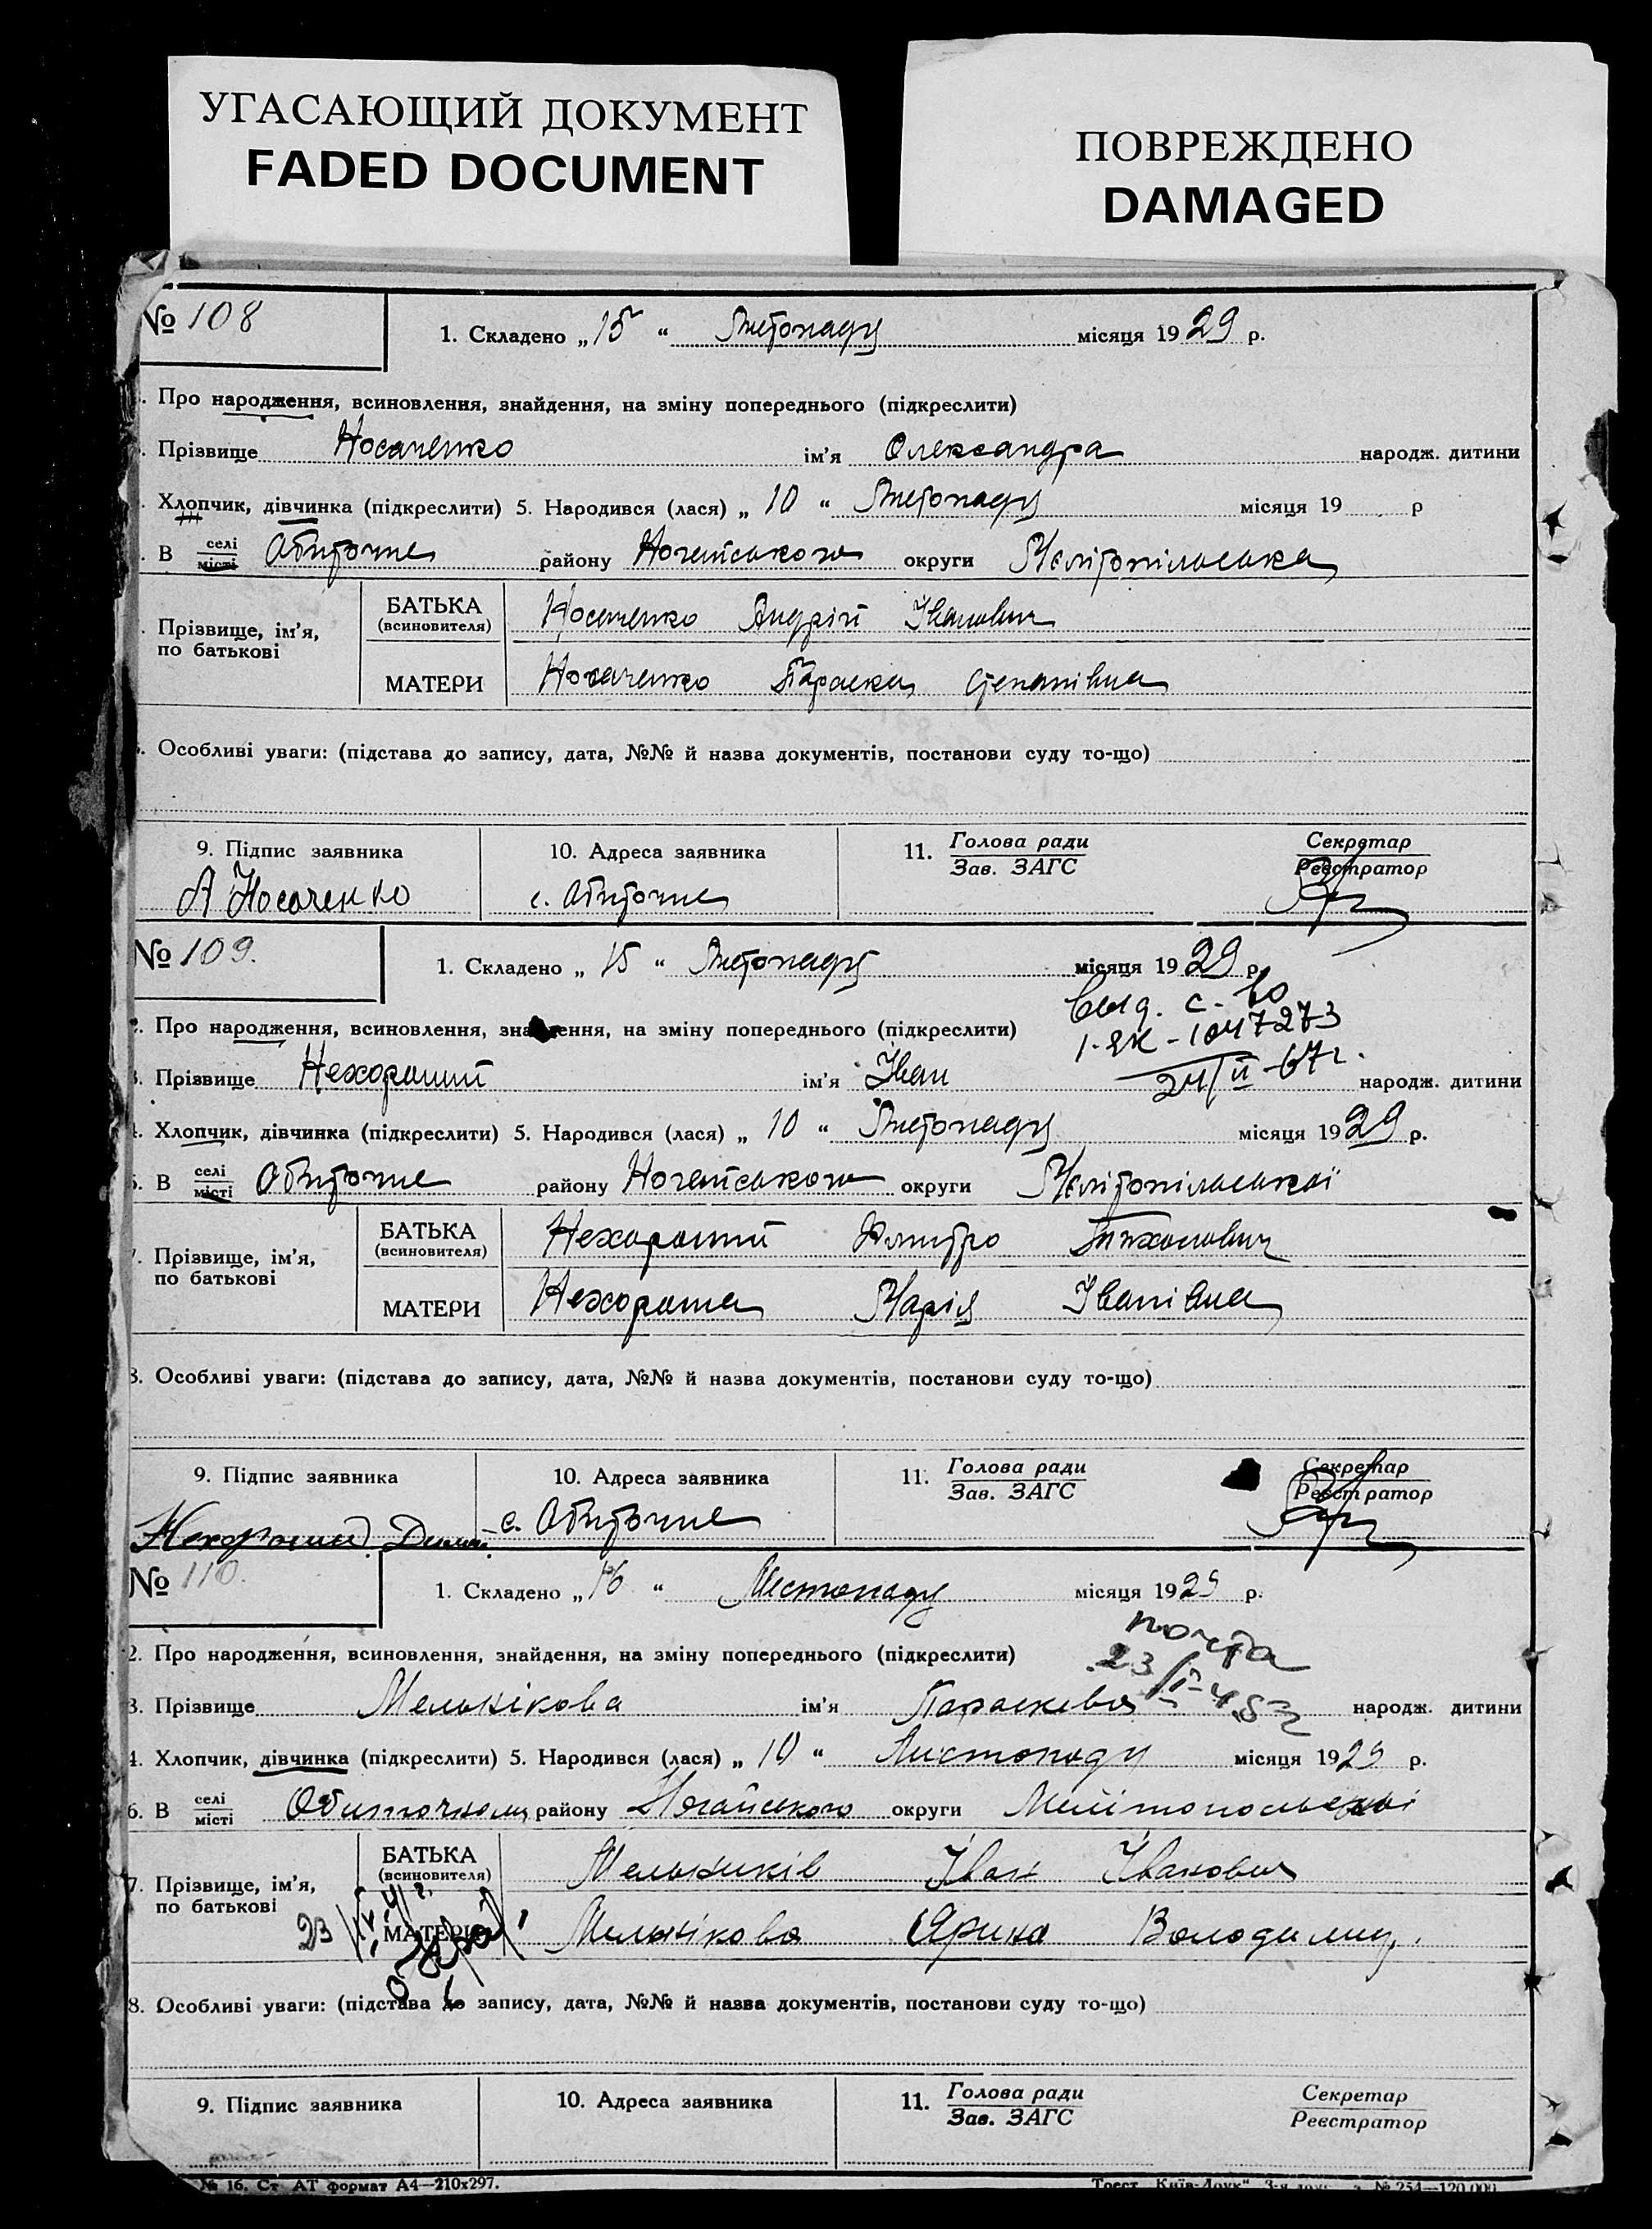 УГАСАЮЩИЙ ДОКУМЕНТ
FADED DOCUMENT
ПОВРЕЖДЕНО
DAMAGED
№ 108
1. Складено „15“ Листопаду місяця 1929 р.
. Про народження, всиновлення, знайдення, на зміну попереднього (підкреслити)
. Прізвище Носаченко ім'я Олександра народж. дитини
Хлопчик, дівчинка (підкреслити) 5. Народився (лася) „10“ Листопаду місяця 19 р
. В селі місті Обиточне району Ногайського округи Мелітопільська
. Прізвище, ім'я, по батькові
БАТЬКА (всиновителя) Носаченко Андрій Іванович
МАТЕРИ Носаченко Параска Степанівна
. Особливі уваги: (підстава до запису, дата, №№ й назва документів, постанови суду то-що)
9. Підпис заявника 10. Адреса заявника 11. Голова ради Зав. ЗАГС Секретар Реєстратор
А Носаченко с. Обиточне
№ 109.
1. Складено „15“ Листопаду місяця 1929 р.
выд. с-во
2. Про народження, всиновлення, знайдення, на зміну попереднього (підкреслити)
1-ЯК-1047273
24/II-67г.
3. Прізвище Нехороший ім'я Іван народж. дитини
4. Хлопчик, дівчинка (підкреслити) 5. Народився (лася) „10“ Листопаду місяця 1929 р.
6. В селі місті Обиточне району Ногайського округи Мелітопільської
7. Прізвище, ім'я, по батькові
БАТЬКА (всиновителя) Нехороший Дмитро Тихонович
МАТЕРИ Нехороша Марія Іванівна
8. Особливі уваги: (підстава до запису, дата, №№ й назва документів, постанови суду то-що)
9. Підпис заявника 10. Адреса заявника 11. Голова ради Зав. ЗАГС Секретар Реєстратор
Нехороший с. Обиточне
№ 110.
1. Складено „16“ Листопаду місяця 1929 р.
почта
2. Про народження, всиновлення, знайдення, на зміну попереднього (підкреслити)
3. Прізвище Мельнікова ім'я Параскева народж. дитини
4. Хлопчик, дівчинка (підкреслити) 5. Народився (лася) „10“ Листопаду місяця 1929 р.
6. В селі місті Обиточному району Ногайського округи Мелітопольської
7. Прізвище, ім'я, по батькові
БАТЬКА (всиновителя) Мельників Іван Іванович
МАТЕРИ Мельнікова Ярина Володимир.
8. Особливі уваги: (підстава до запису, дата, №№ й назва документів, постанови суду то-що)
9. Підпис заявника 10. Адреса заявника 11. Голова ради Зав. ЗАГС Секретар Реєстратор
№ 16. Ст. АТ формат А4—210х297.
Трест „Київ-Друк“ № 254—120.000